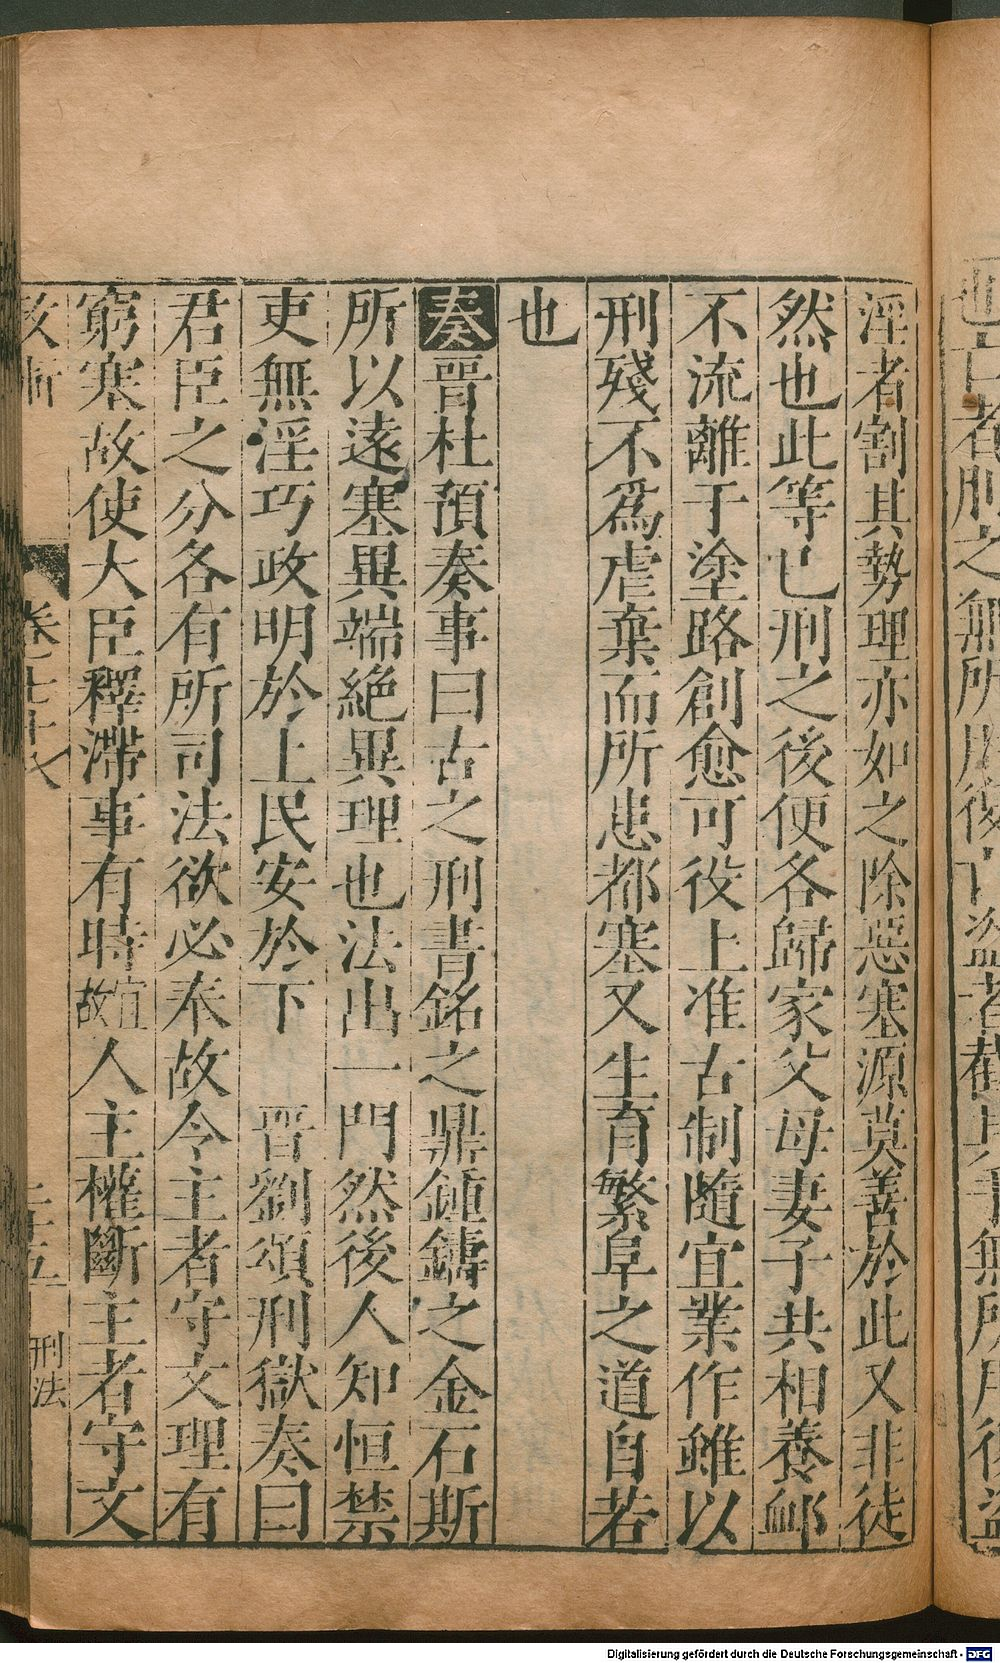 淫者割其勢理亦如之除惡塞源莫善於此又非徒
然也此等已刑之後便各歸家父母妻子共相養卹
不流離于塗路創愈可役上准古制隨宜業作雖以
刑殘不為虐棄而所患都塞又生育繁阜之道自若
也
奏晉杜預奏事曰古之刑書銘之鼎鍾鑄之金石斯
所以遠塞異端絕異理也法出一門然後人知恒禁
吏無淫巧政明於上民安於下 晉劉頌刑獄奏曰
君臣之分各有所司法欲必奉故令主者守文理有
窮塞故使大臣釋滯事有時宜故人主權斷主者守文
刑法
Digitalisierung gefördert durch die Deutsche Forschungsgemeinschaft - DFG